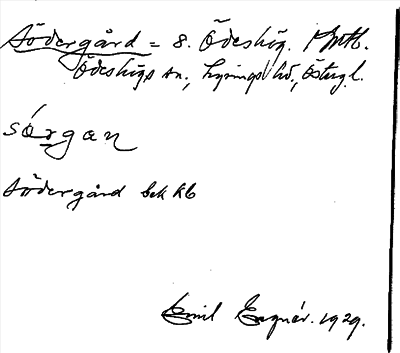 Södergård = 8. Ödeshög. 1 Mtl.
Ödeshögs sn., Lysings hd., Östergl.
sörgan
Södergård bek kb
Emil Engnér. 1929.